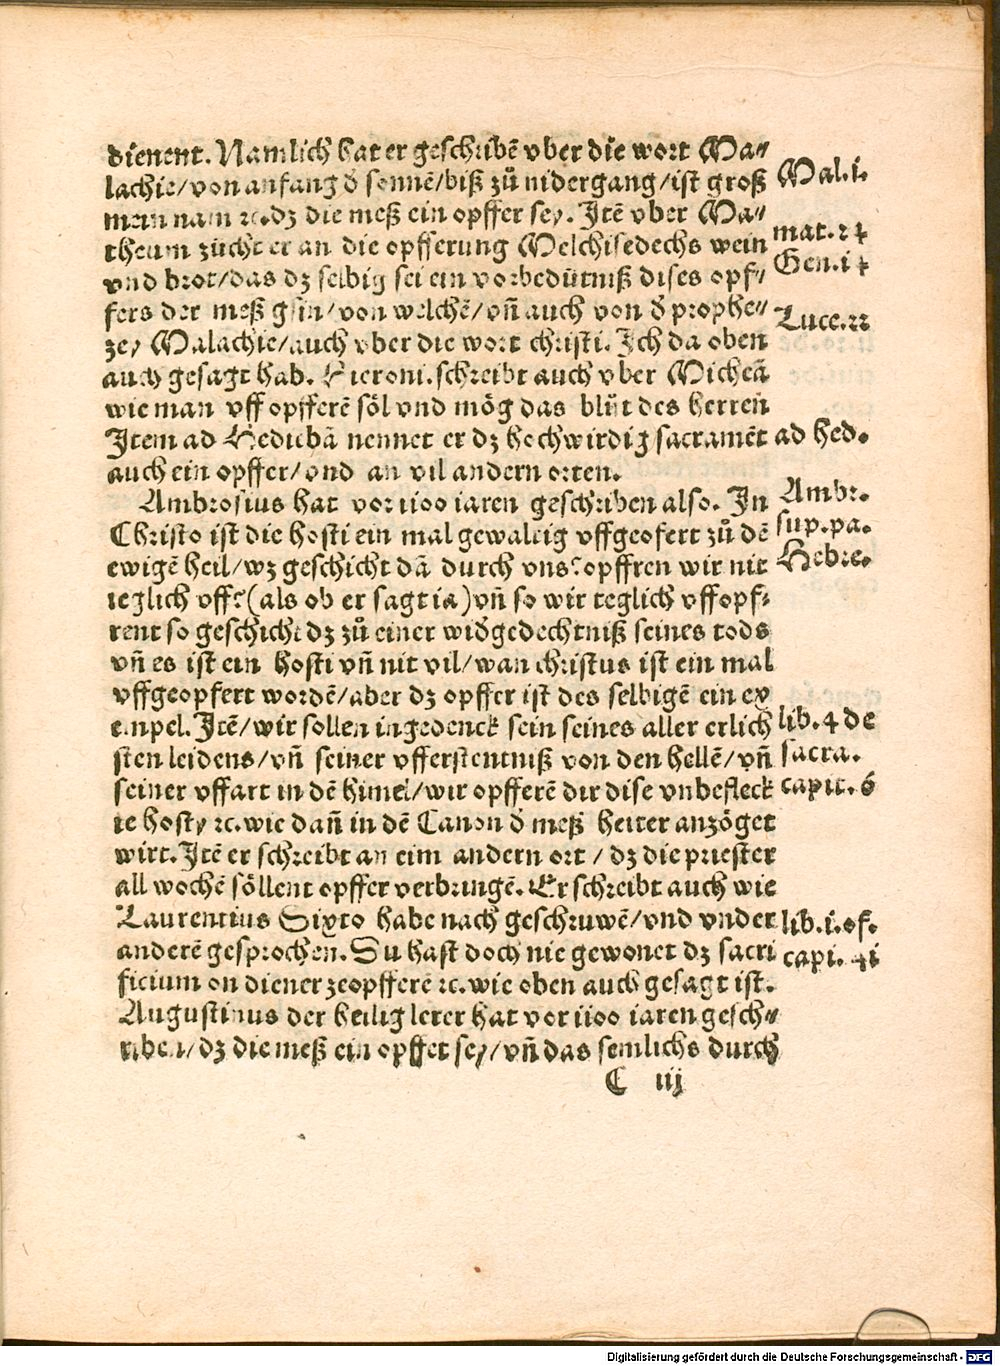 dienent. Namlich hat er geschribē vber die wort Ma⸗
lachie/von anfang ď sonnē/biß zů nidergang/ist groß
mein nam ꝛc.dz die meß ein opffer sey. Itē vber Ma⸗
theum zücht er an die opfferung Melchisedechs wein
vnd brot/das dz selbig sei ein vorbedütniß dises opf⸗
fers der meß gsin/von welchē/vñ auch von ď prophe⸗
zey Malachie/auch vber die wort christi. Ich da oben
auch gesagt hab. Hieroni.schreibt auch vber Micheā
wie man vff opfferē söl vnd mög das blůt des herren
Item ad Hedibā nennet er dz hochwirdig sacramēt
auch ein opffer/vnd an vil andern orten.
Ambrosius hat vor iioo iaren geschriben also. In
Christo ist die hosti ein mal gewaltig vffgeofert zů dē
ewigē heil/wz geschicht dā durch vns?opffren wir nit
teglich vff?(als ob er sagt ia)vñ so wir teglich vffopf⸗
rent so geschicht dz zů einer widgedechtniß seines tods
vñ es ist ein hosti vñ nit vil/wan christus ist ein mal
vffgeopfert wordē/aber dz opffer ist des selbigē ein ex
empel. Itē/wir sollen ingedenck sein seines aller erlich
sten leidens/vñ seiner vfferstentniß von den hellē/vñ
seiner vffart in dē himel/wir opfferē dir dise vnbefleck
te hosty ꝛc.wie dañ in dē Canon ď meß heiter anzöget
wirt. Itē er schreibt an eim andern ort / dz die priester
all wochē söllent opffer verbringē. Er schreibt auch wie
Laurentius Sixto habe nach geschruwē/vnd vnder
anderē gesprochen. Du hast doch nie gewonet dz sacri
ficium on diener zeopfferē ꝛc.wie oben auch gesagt ist.
Augustinus der heilig lerer hat vor iioo iaren gesch⸗
riben/dz die meß ein opffer sey/vñ das semlichs durch
C iij
Mal.i.
mat.24
Gen.i4
Luce.22
ad hed.
Ambr.
sup.pa.
Hebre.
lib.4 de
sacra.
capit.6
lib.i.of.
capi. 4i
Digitalisierung gefördert durch die Deutsche Forschungsgemeinschaft - DFG